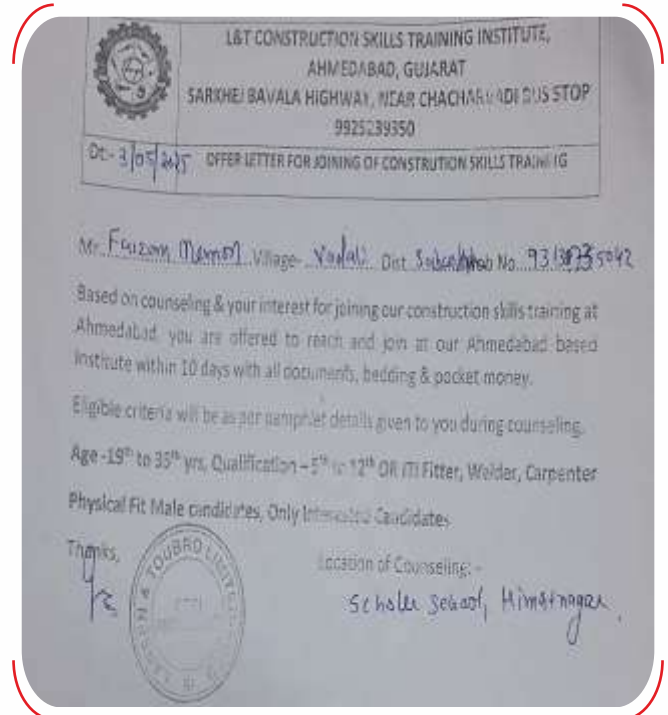 L&T CONSTRUCTION SKILLS TRAINING INSTITUTE,
AHMEDABAD, GUJARAT
SARKHEJ BAVALA HIGHWAY, NEAR CHACHARWADI BUS STOP
9925239350
Dt:- 3/05/2025 OFFER LETTER FOR JOINING OF CONSTRUTION SKILLS TRAINING
Mr. Faizan Memon Village- Vadali Dist Mob No.
Based on counseling & your interest for joining our construction skills training at
Ahmedabad, you are offered to reach and join at our Ahmedabad based
institute within 10 days with all documents, bedding & pocket money.
Eligible criteria will be as per pamphlet details given to you during counseling.
Age -19th to 35th yrs, Qualification – 5th to 12th OR ITI Fitter, Welder, Carpenter
Physical Fit Male candidates, Only Interested Candidates
Thanks,
Location of Counseling: -
LARSEN & TOUBRO LIMITED
Scholer School, Himatnagar.